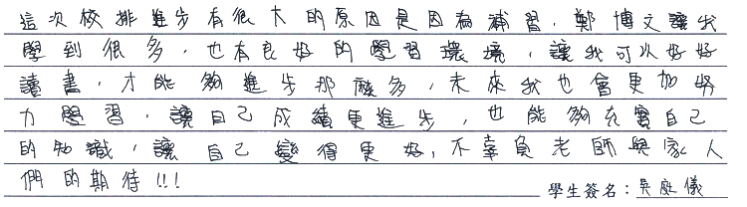 這次校排進步有很大的原因是因為補習,鄭博文讓我
學到很多,也有良好的學習環境,讓我可以好好
讀書,才能夠進步那麼多,未來我也會更加努
力學習,讓自己成績更進步,也能夠充實自己
的知識,讓自己變得更好,不辜負老師與家人
們的期待!!!
學生簽名:吳庭儀